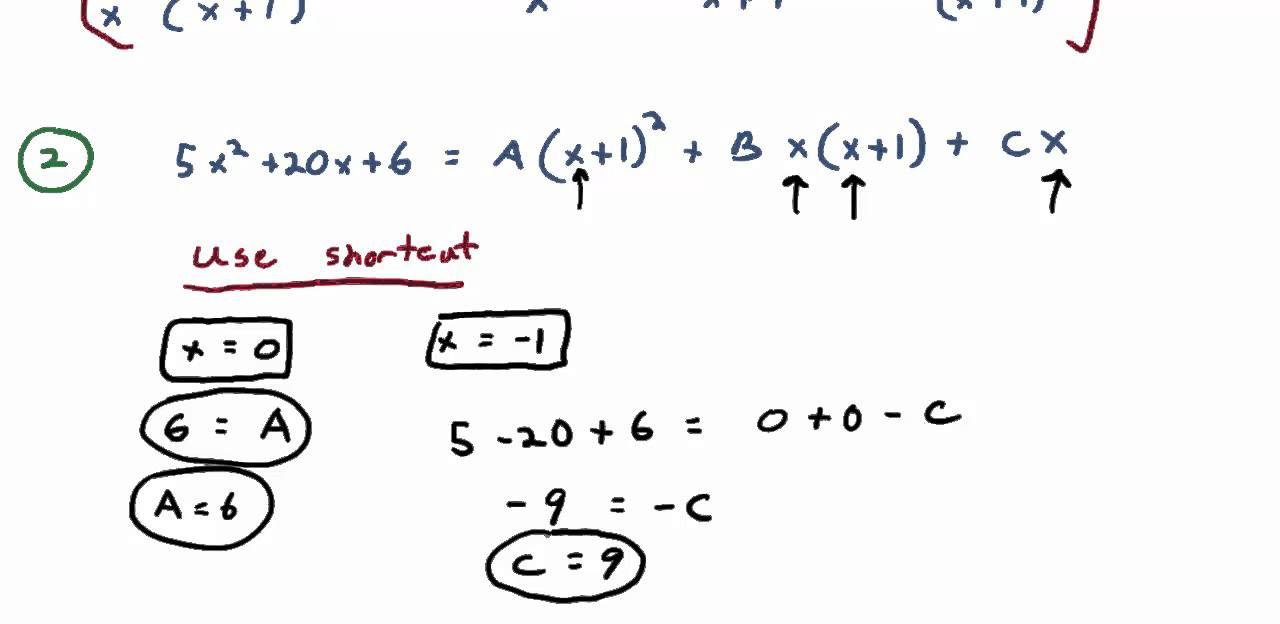 x (x+1)
② 5x² +20x+6 = A(x+1)² + B x(x+1) + C x
↑ ↑ ↑ ↑
Use shortcut
x = 0 x = -1
6 = A 5 -20 + 6 = 0 + 0 - C
A = 6 - 9 = - C
C = 9